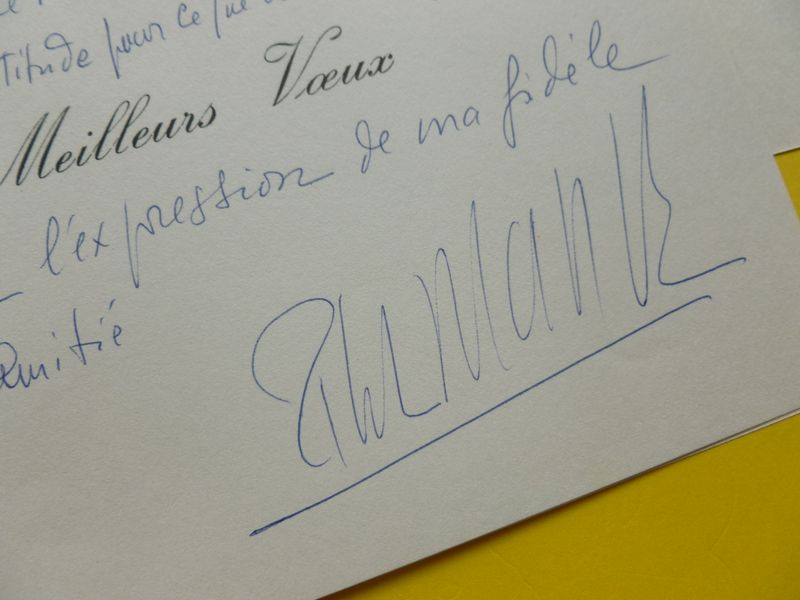 titude pour ce que
Meilleurs Vœux
l'expression de ma fidèle
amitié